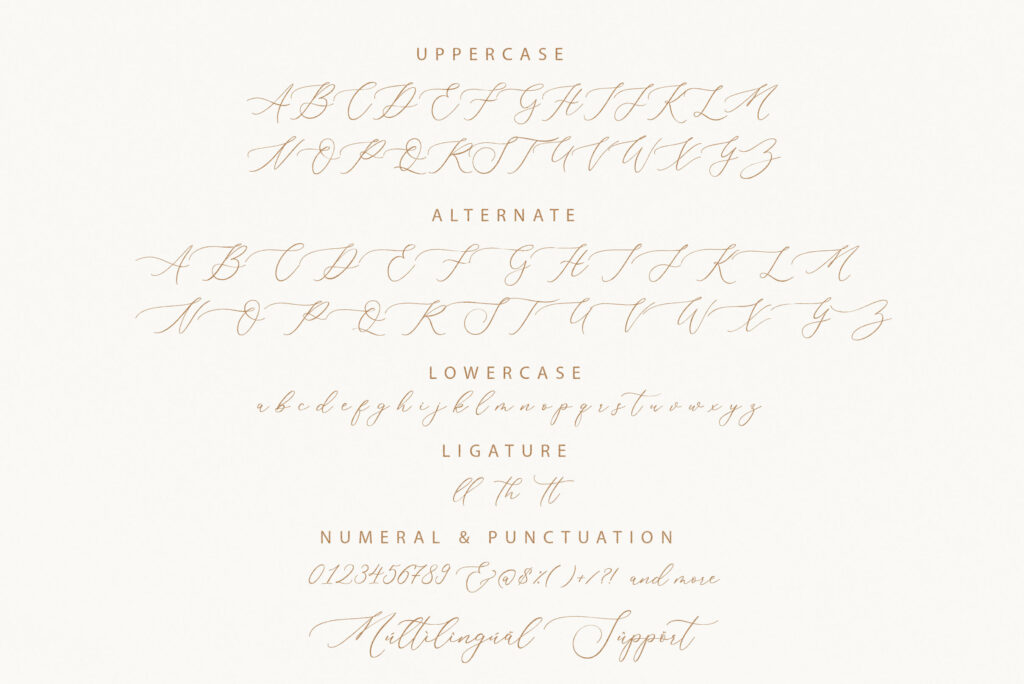 UPPERCASE
A B C D E F G H I J K L M
N O P Q R S T U V W X Y Z
ALTERNATE
A B C D E F G H I J K L M
N O P Q R S T U V W X Y Z
LOWERCASE
a b c d e f g h i j k l m n o p q r s t u v w x y z
LIGATURE
ll th tt
NUMERAL & PUNCTUATION
0123456789 &@$%( )+/?! and more
Múltilingúál Súppórt